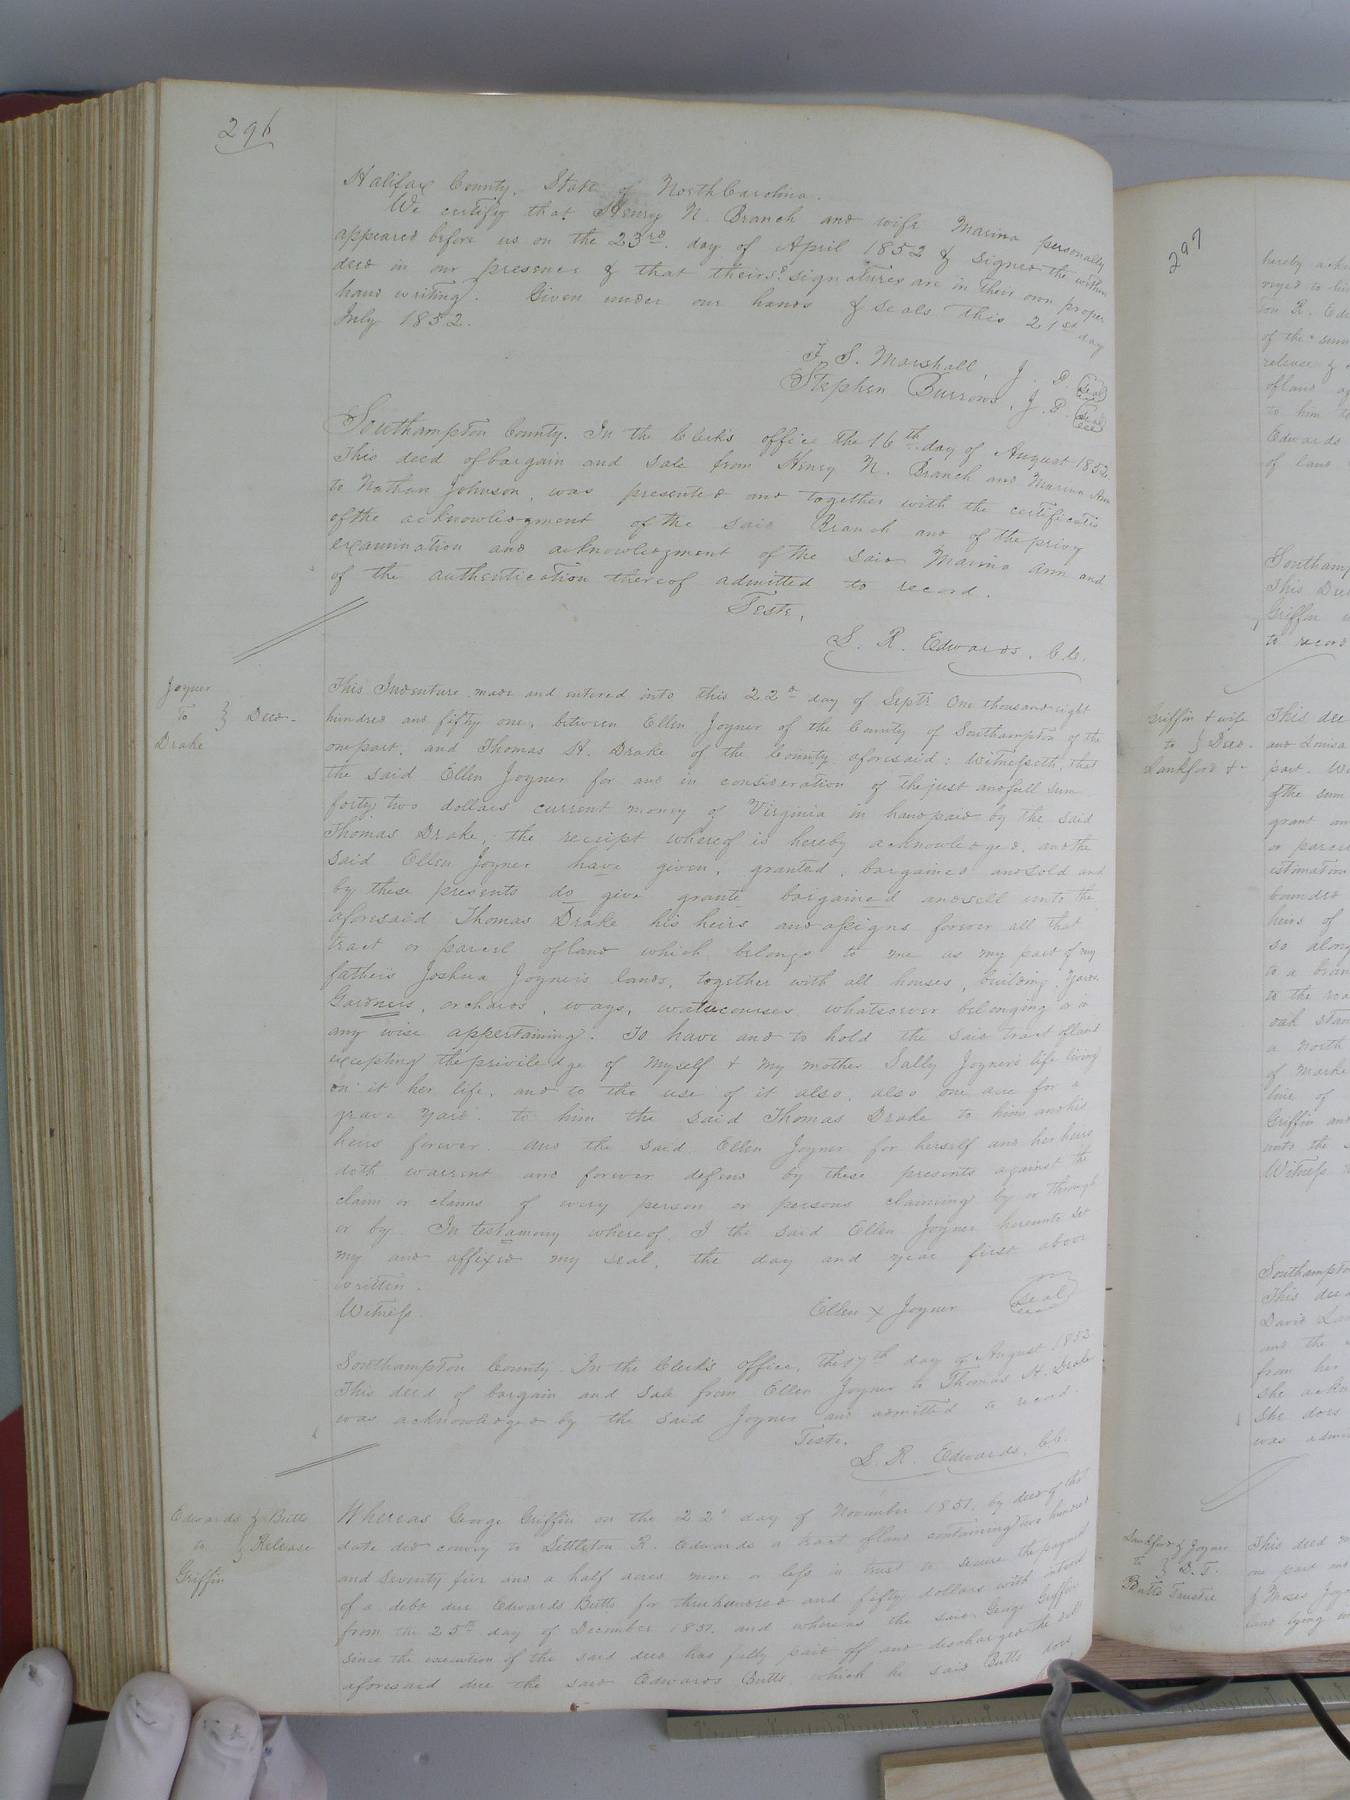 296
Halifax County, State of North Carolina.
We certify that Henry N. Branch and wife Marina personally
appeared before us on the 23rd. day of April 1852 & signed the within
deed in our presence & that theirs? signatures are in their own proper
hand writing. Given under our hands & seals this 21st day
July 1852.
S. Marshall, J. P. Seal
Stephen Burrows, J. P. Seal
Southampton County. In the Clerk's office the 16th day of August 1852.
This deed of bargain and sale from Henry N. Branch and Marina Ann
to Nathan Johnson, was presented and together with the certificates
of the acknowledgment of the said Branch and of the privy
examination and acknowledgment of the said Marina Ann and
of the authentication thereof admitted to record.
Teste,
S. R. Edwards, C. C.
Joyner
To } Deed-
Drake
This Indenture made and entered into this 22d day of Septr One thousand eight
hundred and fifty one, between Ellen Joyner of the County of Southampton of the
one part, and Thomas H. Drake of the County aforesaid: Witnesseth, that
the said Ellen Joyner for and in consideration of the just and full sum
forty two dollars current money of Virginia in hand paid by the said
Thomas Drake, the receipt whereof is hereby acknowledged, and the
said Ellen Joyner have given, granted, bargained and sold and
by these presents do give grante bargained and sell unto the
aforesaid Thomas Drake his heirs and assigns forever all that
tract or parcel of land which belongs to me as my part of my
father's Joshua Joyner's lands, together with all houses, building, yards
Gardners, orchards, ways, watercourses whatsoever belonging or a
any wise appertaining. To have and to hold the said tract of land
excepting the priviledge of myself & my mother Sally Joyner's life living
on it her life, and to the use of it also, also one acre for a
grave yard. to him the said Thomas Drake to him and his
heirs forever. and the said Ellen Joyner for herself and her heirs
doth warrent and forever defend by these presents against the
claim or claims of every person or persons claiming by or through
or by. In testamony whereof I the said Ellen Joyner hereunto set
my and affixed my seal, the day and year first above
written.
Witness. Ellen X Joyner Seal
Southampton County. In the Clerk's office, the 17th day of August 1852
This deed of bargain and sale from Ellen Joyner to Thomas H. Drake
was acknowledged by the said Joyner and admitted to record.
Teste,
S. R. Edwards, C. C.
Edwards & Butts
to } Release
Griffin
Whereas George Griffin on the 22d day of November 1851, by deed of that
date did convey to Littleton R. Edwards a tract of land containing two hundred
and seventy five and a half acres more or less in trust to secure the payment
of a debt due Edwards Butts for three hundred and fifty dollars with interest
from the 25th day of December 1851. and whereas the said George Griffin
since the execution of the said deed has fully paid off and discharged the debt
aforesaid due the said Edwards Butts which he said Butts does
297
hereby ackn
of the sum
release &
of land
to him
Edwards
of land
Southamp
This Deed
Griffin
to record
Griffin & wife
to } Deed.
Lankford &c
This dee
and Louisa
part. Wi
of the sum
grant an
or parcel
estimation
bounded
heirs of
so along
to a bran
to the roa
oak stan
a north
of marke
line of
Griffin and
unto the
Witness
Southampto
This deed
David Lan
and the
from her
she ackn
she does
was admi
Lankford & Joyner
to } D. T.
Butts Trustee
This deed
one part
of Moses Joy
land lying